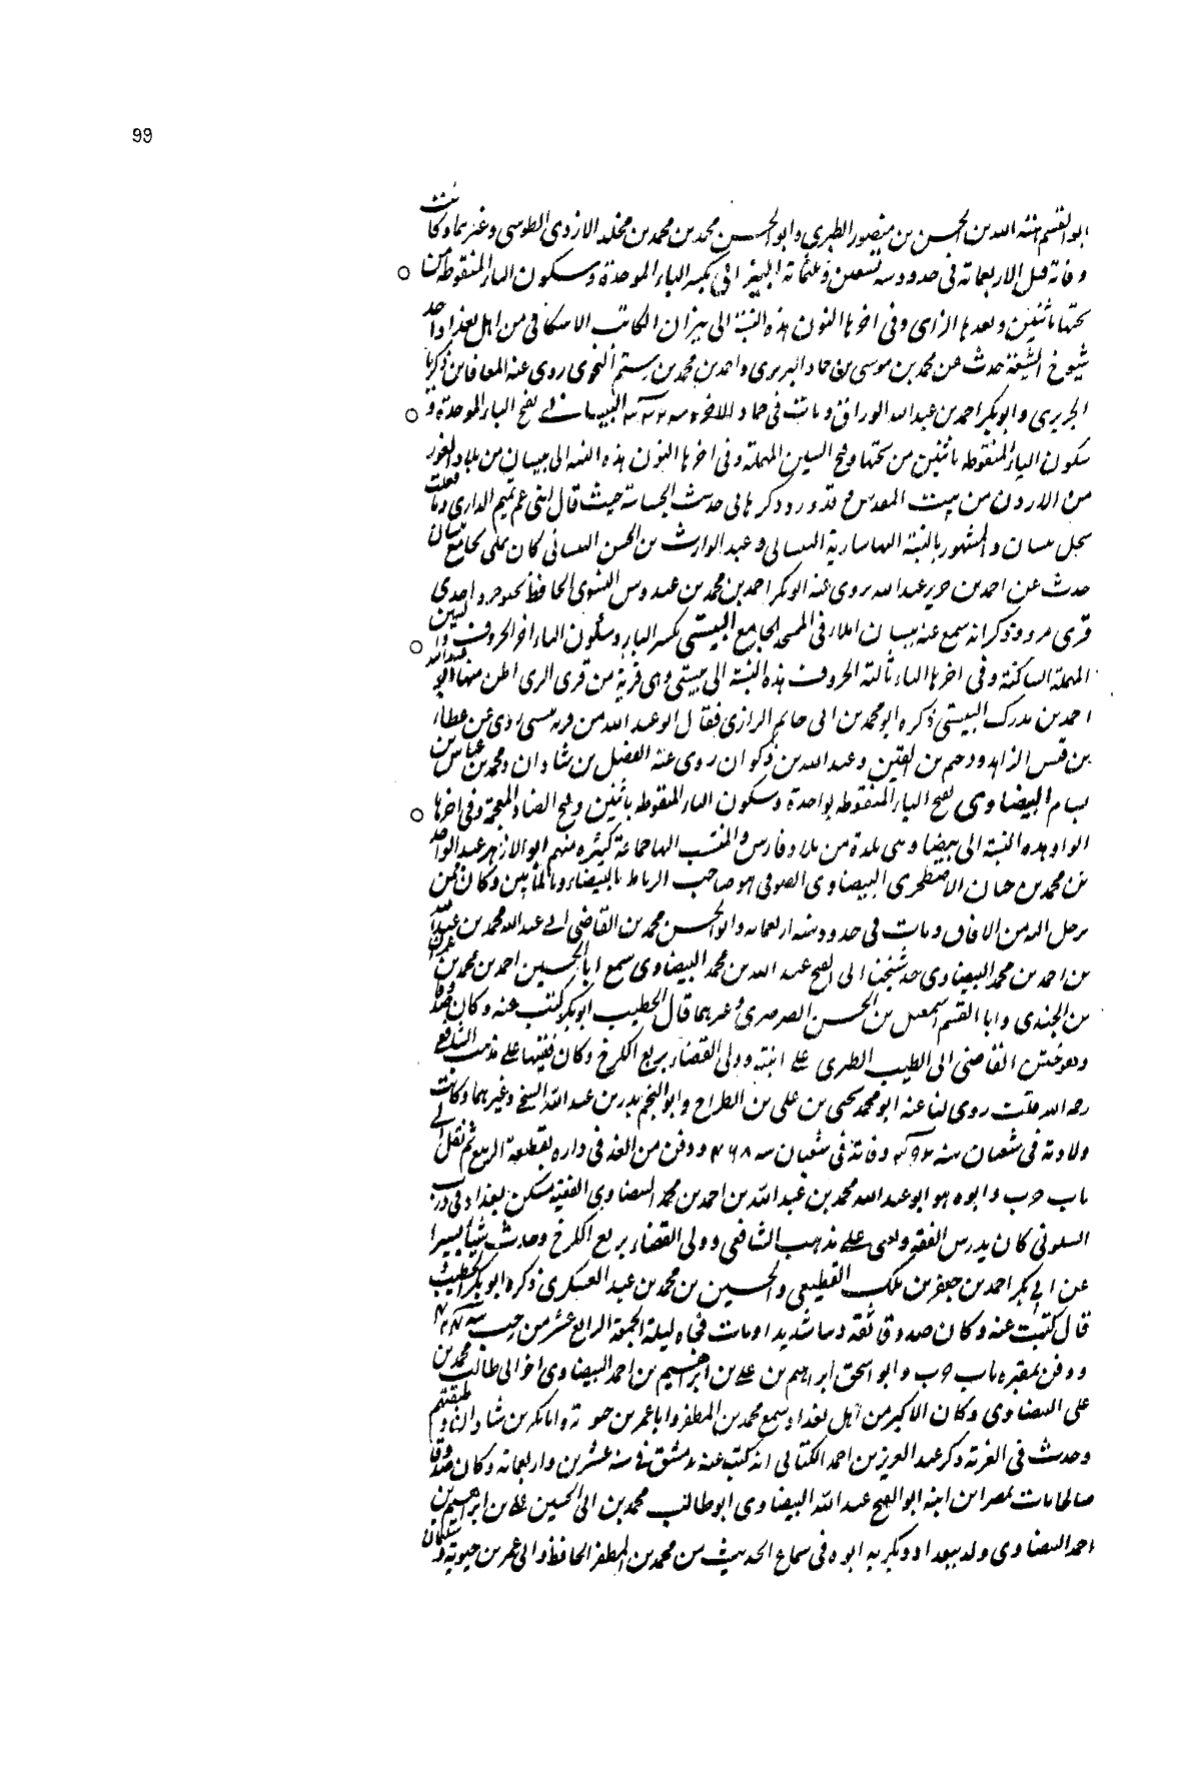 99
ابو القسم هبة الله بن الحسن بن منصور الطبرى وابو الحسن محمد بن محمد بن مخلد الازدى الطوسى وغيرهما وكانت
وفاته قبل الاربعمائة فى حدود سنة تسعين وثلثمائة البيزانى بكسر الباء الموحدة وسكون الياء المنقوطة من
تحتها باثنين وبعدها الزاى وفى اخرها النون هذه النسبة الى بيزان الكاتب الاسكافى من اهل بغداد احد
شيوخ الشيعة حدث عن محمد بن موسى بن حماد البربرى واحمد بن محمد بن رستم النحوى روى عنه المعافا بن زكريا
الجريرى وابو بكر احمد بن عبد الله الوراق ومات فى جماد الاخرة سنة البيسانى بفتح الباء الموحدة و
سكون الياء المنقوطة باثنين من تحتها وفتح السين المهملة وفى اخرها النون هذه النسبة الى بيسان من بلاد الغور
من الاردن من بيت المقدس وقد ورد ذكرها فى حديث الجساسة حيث قال ابنى عم تميم الدارى وما فعلت
نخل بيسان والمشهور بالنسبة اليها سارية البيسانى وعبد الوارث بن الحسن البيسانى كان يملى بجامع بيسان
حدث عن احمد بن عبد الله روى عنه ابو بكر احمد بن محمد بن عبدوس النسوى الحافظ احدى
قرى مرو وذكر انه سمع عنه ببيسان املاء فى المسجد الجامع البيستى بكسر الباء وسكون الياء اخر الحروف والسين
المهملة الساكنة وفى اخرها التاء ثالثة الحروف هذه النسبة الى بيستى وهى قرية من قرى الرى اظن منها ابو عبد الله
احمد بن مدرك البيستى ذكره ابو محمد بن ابى حاتم الرازى فقال ابو عبد الله من قرية بيستى روى عن عطاء
بن قيس الزاهد ودحيم بن اليتيم وعبد الله بن ذكوان روى عنه الفضل بن شاذان ومحمد بن عباس بن
بسام البيضاوى بفتح الباء المنقوطة بواحدة وسكون الياء المنقوطة باثنين وفتح الضاد المعجمة وفى اخرها
الواو هذه النسبة الى بيضا وهى بلدة من بلاد فارس والمنتسب اليها جماعة كثيرة منهم ابو الازهر عبد الواحد
بن محمد بن حيان الاصطخرى البيضاوى الصوفى هو صاحب الرباط بالبيضاء وبالمايين وكان ممن
يرحل اليه من الافاق ومات فى حدود سنة اربعمائة وابو الحسن محمد بن القاضى ابى عبد الله محمد بن عبد الله
بن احمد بن محمد البيضاوى جد شيخنا ابى الفتح عبد الله بن محمد البيضاوى سمع ابا الحسين احمد بن محمد بن عمران
بن الجندى وابا القسم اسمعيل بن الحسن الصرصرى وغيرهما قال الخطيب ابو بكر كتبت عنه وكان صدوقا
وهو ختن القاضى ابى الطيب الطبرى على ابنته وولى القضاء بربع الكرخ وكان فقيها على مذهب الشافعى
رحمه الله قلت روى لنا عنه ابو محمد يحيى بن على بن الطراح وابو النجم بدر بن عبد الله الشيحى وغيرهما وكانت
ولادته فى شعبان سنة ٣٩٢ وفاته فى شعبان سنة ٤٦٨ ودفن من الغد فى داره بقطيعة الربيع ثم نقل الى
باب حرب وابوه هو ابو عبد الله محمد بن عبد الله بن احمد بن محمد البيضاوى الفقيه سكن بغداد فى درب
السلولى كان يدرس الفقه ويفتى على مذهب الشافعى وولى القضاء بربع الكرخ وحدث شيئا يسيرا
عن ابى بكر احمد بن جعفر بن ملك القطيعى والحسين بن محمد بن عبيد العسكرى ذكره ابو بكر الخطيب
قال كتبت عنه وكان صدوقا ثقة دينا شديدا ومات فجاة ليلة الجمعة الرابع عشر من رجب سنة
ودفن بمقبرة باب حرب وابو اسحق ابراهيم بن على بن ابراهيم بن احمد البيضاوى اخو ابى طالب محمد بن
على البيضاوى وكان الاكبر من اهل بغداد سمع محمد بن المظفر وابا عمر بن حيويه وابا بكر بن شاذان وطبقتهم
وحدث فى الغربة ذكر عبد العزيز بن احمد الكتانى انه كتب عنه بدمشق فى سنة عشرين واربعمائة وكان صدوقا
صالحا مات بمصر ابن ابنه ابو الفتح عبد الله البيضاوى ابو طالب محمد بن ابى الحسين على بن ابراهيم بن
احمد البيضاوى ولد ببغداد وبكر به ابوه فى سماع الحديث من محمد بن المظفر الحافظ وابى عمر بن حيويه وكان